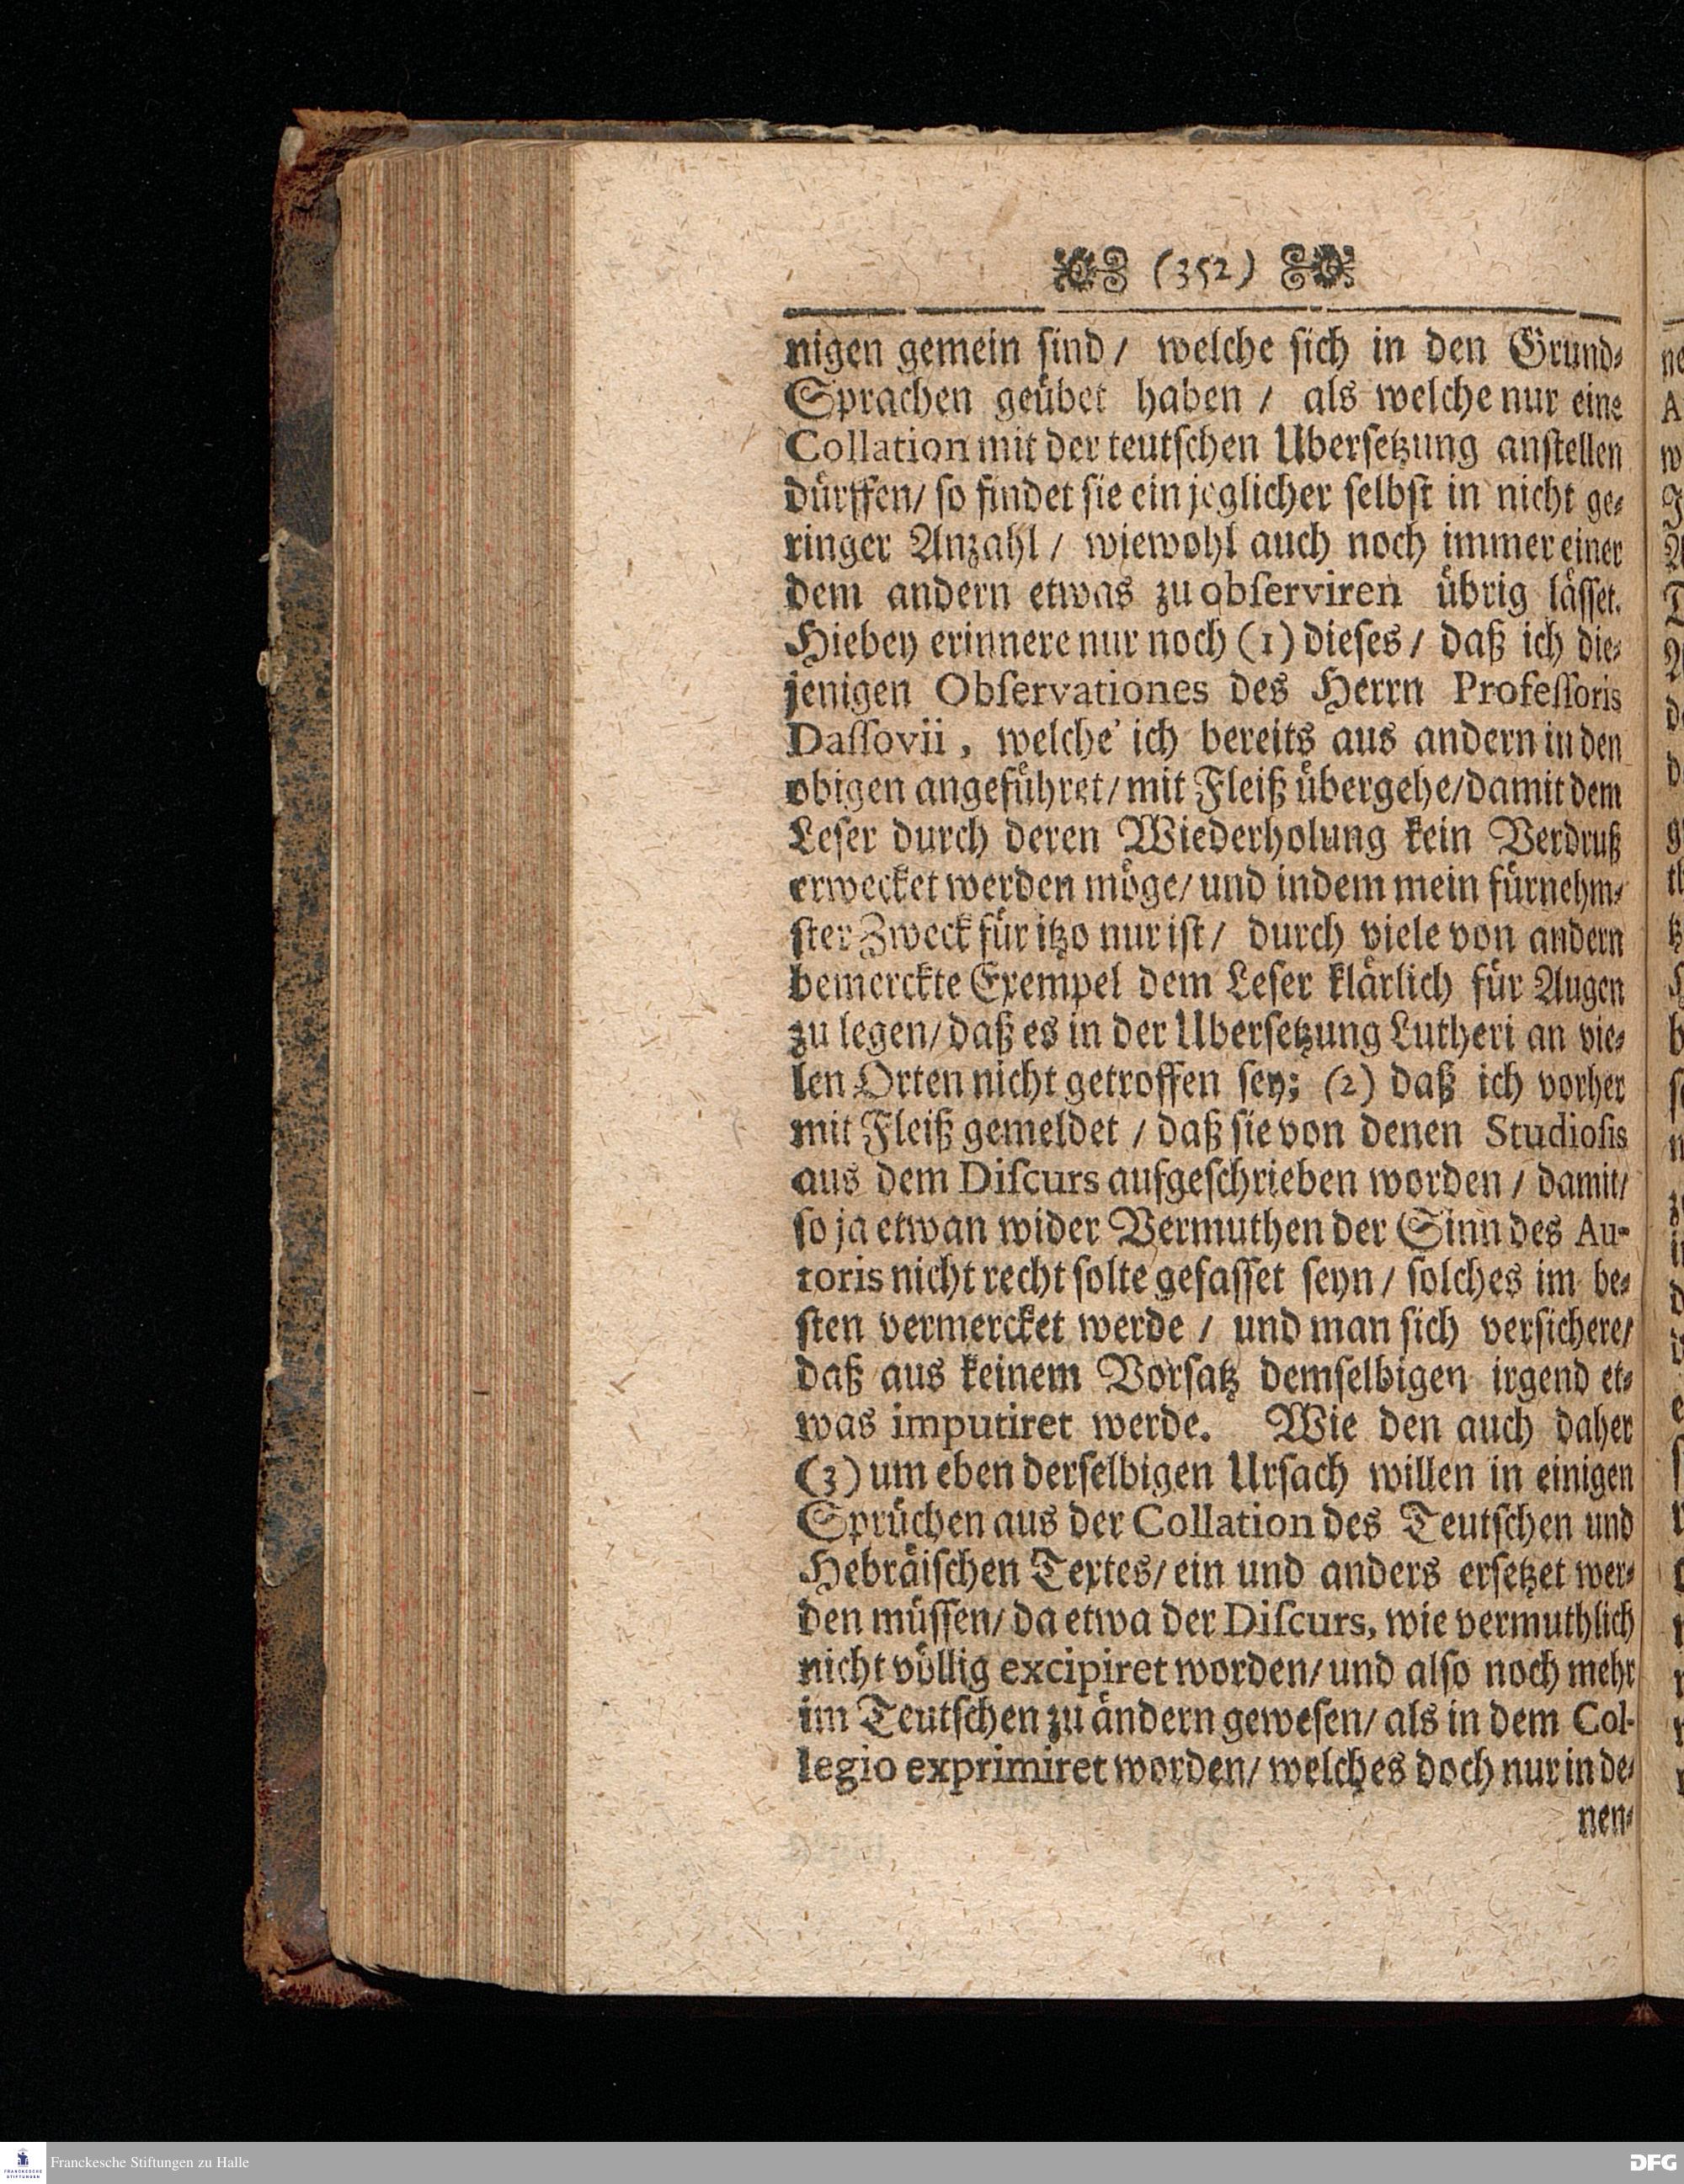 (352)
nigen gemein sind/ welche sich in den Grund⸗
Sprachen geübet haben/ als welche nur eine
Collation mit der teutschen Ubersetzung anstellen
dürffen/ so findet sie ein jeglicher selbst in nicht ge⸗
ringer Anzahl/ wiewohl auch noch immer einer
dem andern etwas zu observiren übrig lässet.
Hiebey erinnere nur noch (1) dieses/ daß ich die⸗
jenigen Observationes des Herrn Professoris
Dassovii, welche ich bereits aus andern in den
obigen angeführet/ mit Fleiß übergehe/ damit dem
Leser durch deren Wiederholung kein Verdruß
erwecket werden möge/ und indem mein fürnehm⸗
ster Zweck für itzo nur ist/ durch viele von andern
bemerckte Exempel dem Leser klärlich für Augen
zu legen/ daß es in der Ubersetzung Lutheri an vie⸗
len Orten nicht getroffen sey; (2) daß ich vorher
mit Fleiß gemeldet/ daß sie von denen Studiosis
aus dem Discurs aufgeschrieben worden/ damit/
so ja etwan wider Vermuthen der Sinn des Au-
toris nicht recht solte gefasset seyn/ solches im be⸗
sten vermercket werde/ und man sich versichere/
daß aus keinem Vorsatz demselbigen irgend et⸗
was imputiret werde. Wie den auch daher
(3) um eben derselbigen Ursach willen in einigen
Sprüchen aus der Collation des Teutschen und
Hebräischen Textes/ ein und anders ersetzet wer⸗
den müssen/ da etwa der Discurs, wie vermuthlich
nicht völlig excipiret worden/ und also noch mehr
im Teutschen zu ändern gewesen/ als in dem Col-
legio exprimiret worden/ welches doch nur in de⸗
nen⸗
Franckesche Stiftungen zu Halle
DFG